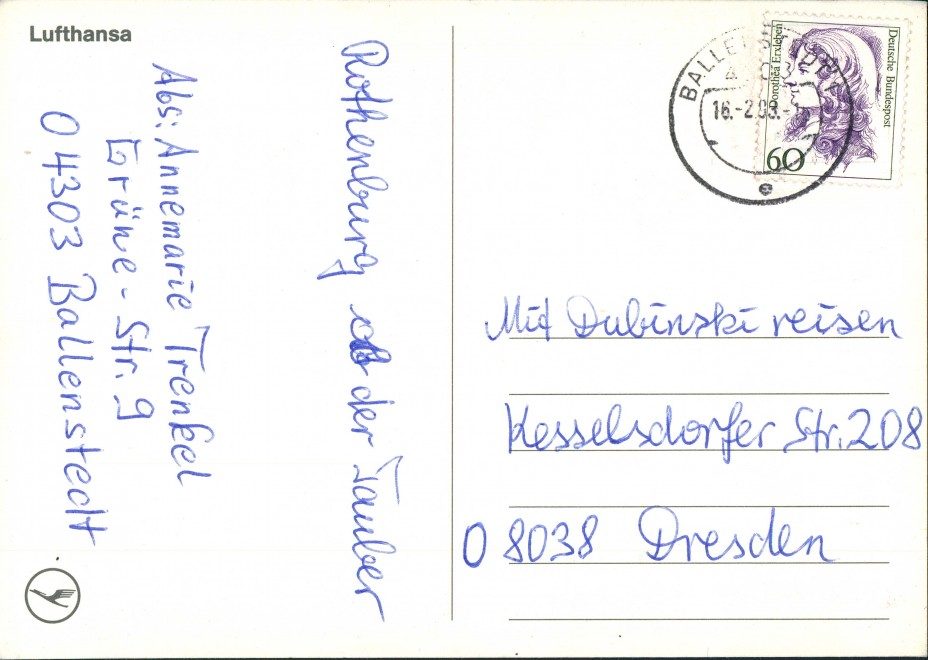 Lufthansa
Abs: Annemarie Trenkel
Grüne-Str. 9
O 4303 Ballenstedt
Rothenburg ob der Tauber
BALLENSTEDT
16.-2.93.-
Dorothea Erxleben
Deutsche Bundespost
60
Mit Dubinski reisen
Kesselsdorfer Str. 208
O 8038 Dresden